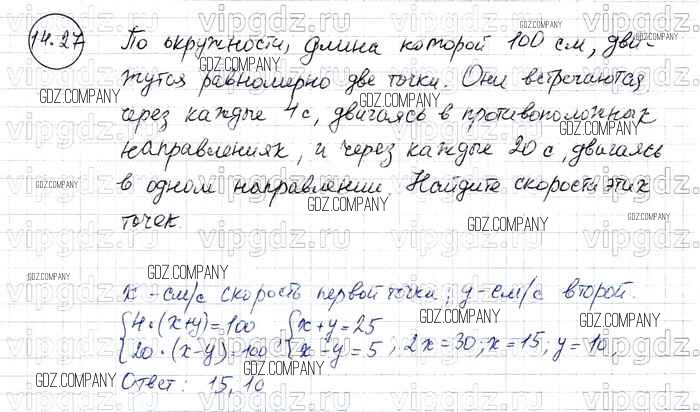 14.27 По окружности, длина которой 100 см, дви-
жутся равномерно две точки. Они встречаются
через каждые 4 с, двигаясь в противоположных
направлениях, и через каждые 20 с, двигаясь
в одном направлении. Найдите скорости этих
точек.
x - см/с скорость первой точки; y - см/с второй.
{4·(x+y)=100 {x+y=25
{20·(x-y)=100 {x-y=5; 2x=30; x=15, y=10,
Ответ: 15, 10
vipgdz.ru
GDZ.COMPANY